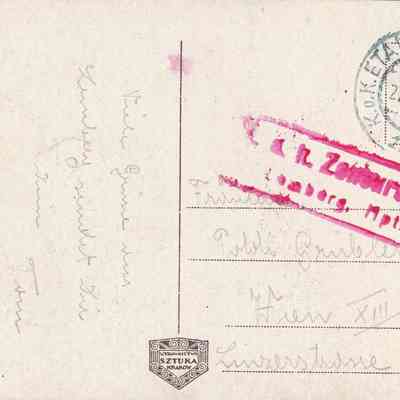 Viele Grüße aus
Lemberg sendet Dir
Dein Toni
K.u.K. ETAP
k. k. Zensurs
Lemberg, Hpt
Fräulein
Poldi
Wien XIII
Linzerstrasse
WYDAWNICTWO
SZTUKA
KRAKÓW